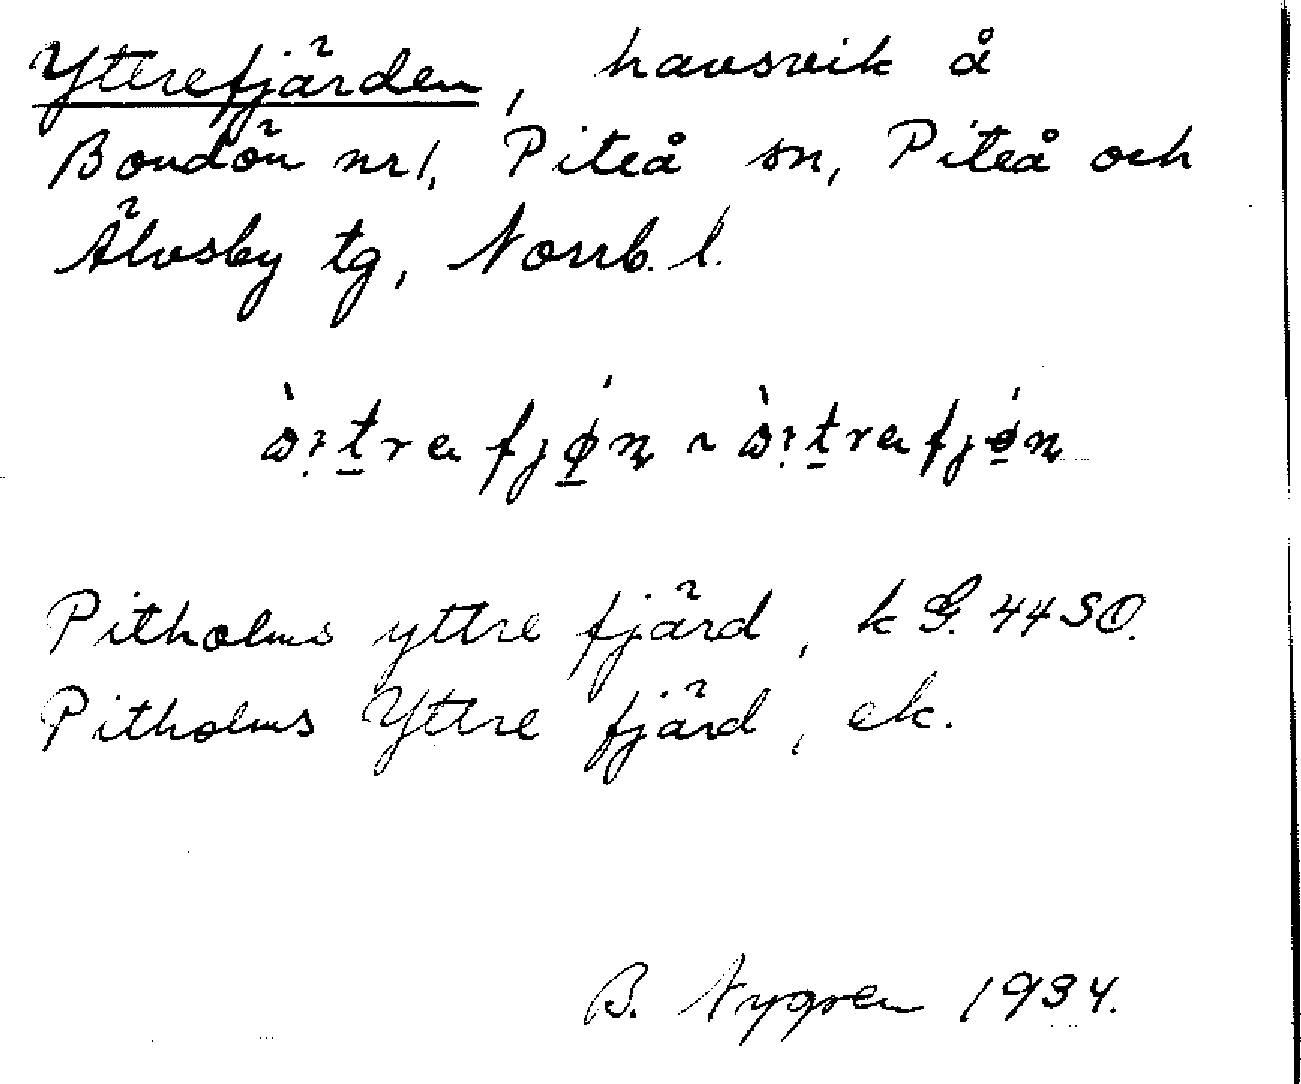 Yttrefjärden, havsvik å
Bondön nr 1, Piteå sn, Piteå och
Älvsby tg, Norrb. l.
Pitholms yttre fjärd, k G. 4450.
Pitholms Yttre fjärd, ek.
B. Nygren 1934.